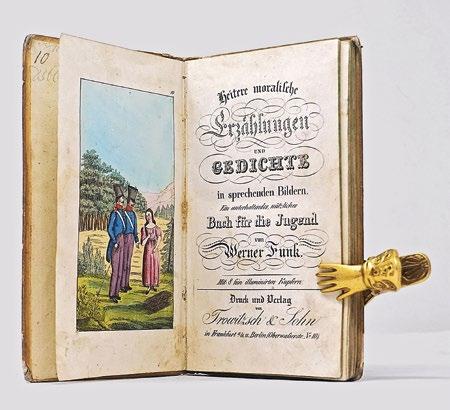 10
Heitere moralische
Erzählungen
UND
GEDICHTE
in sprechenden Bildern.
Ein unterhaltendes, nützliches
Buch für die Jugend
von
Werner Funk.
Mit 8 fein illuminirten Kupfern.
Druck und Verlag
von
Trowitzsch & Sohn
in Frankfurt a/o. u. Berlin (Oberwallstr. No. 10)